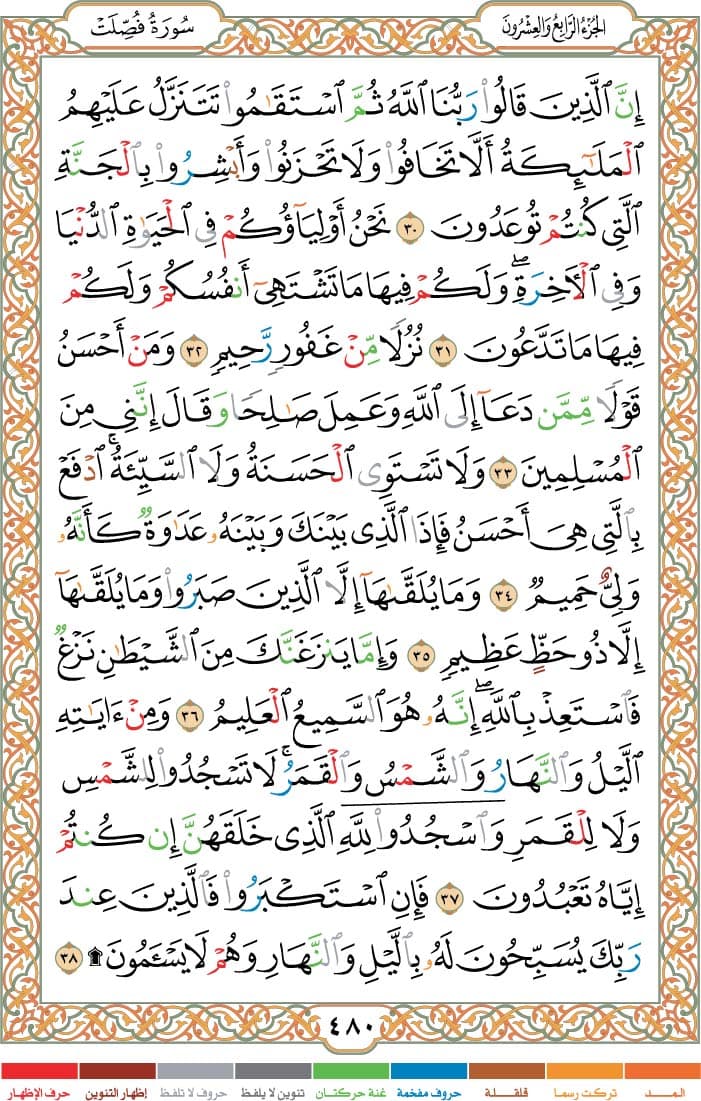 الجزء الرابع والعشرون
سورة فصلت
إِنَّ ٱلَّذِينَ قَالُوا۟ رَبُّنَا ٱللَّهُ ثُمَّ ٱسْتَقَـٰمُوا۟ تَتَنَزَّلُ عَلَيْهِمُ
ٱلْمَلَـٰٓئِكَةُ أَلَّا تَخَافُوا۟ وَلَا تَحْزَنُوا۟ وَأَبْشِرُوا۟ بِٱلْجَنَّةِ
ٱلَّتِى كُنتُمْ تُوعَدُونَ ٣٠ نَحْنُ أَوْلِيَآؤُكُمْ فِى ٱلْحَيَوٰةِ ٱلدُّنْيَا
وَفِى ٱلْـَٔاخِرَةِ ۖ وَلَكُمْ فِيهَا مَا تَشْتَهِىٓ أَنفُسُكُمْ وَلَكُمْ
فِيهَا مَا تَدَّعُونَ ٣١ نُزُلًا مِّنْ غَفُورٍ رَّحِيمٍ ٣٢ وَمَنْ أَحْسَنُ
قَوْلًا مِّمَّن دَعَآ إِلَى ٱللَّهِ وَعَمِلَ صَـٰلِحًا وَقَالَ إِنَّنِى مِنَ
ٱلْمُسْلِمِينَ ٣٣ وَلَا تَسْتَوِى ٱلْحَسَنَةُ وَلَا ٱلسَّيِّئَةُ ۚ ٱدْفَعْ
بِٱلَّتِى هِىَ أَحْسَنُ فَإِذَا ٱلَّذِى بَيْنَكَ وَبَيْنَهُۥ عَدَٰوَةٌ كَأَنَّهُۥ
وَلِىٌّ حَمِيمٌ ٣٤ وَمَا يُلَقَّىٰهَآ إِلَّا ٱلَّذِينَ صَبَرُوا۟ وَمَا يُلَقَّىٰهَآ
إِلَّا ذُو حَظٍّ عَظِيمٍ ٣٥ وَإِمَّا يَنزَغَنَّكَ مِنَ ٱلشَّيْطَـٰنِ نَزْغٌ
فَٱسْتَعِذْ بِٱللَّهِ ۖ إِنَّهُۥ هُوَ ٱلسَّمِيعُ ٱلْعَلِيمُ ٣٦ وَمِنْ ءَايَـٰتِهِ
ٱلَّيْلُ وَٱلنَّهَارُ وَٱلشَّمْسُ وَٱلْقَمَرُ ۚ لَا تَسْجُدُوا۟ لِلشَّمْسِ
وَلَا لِلْقَمَرِ وَٱسْجُدُوا۟ لِلَّهِ ٱلَّذِى خَلَقَهُنَّ إِن كُنتُمْ
إِيَّاهُ تَعْبُدُونَ ٣٧ فَإِنِ ٱسْتَكْبَرُوا۟ فَٱلَّذِينَ عِندَ
رَبِّكَ يُسَبِّحُونَ لَهُۥ بِٱلَّيْلِ وَٱلنَّهَارِ وَهُمْ لَا يَسْـَٔمُونَ ۩ ٣٨
٤٨٠
المــد تركت رسما قلقلة حروف مفخمة غنة حركتان تنوين لا يلفظ حروف لا تلفظ إظهار التنوين حرف الإظهار